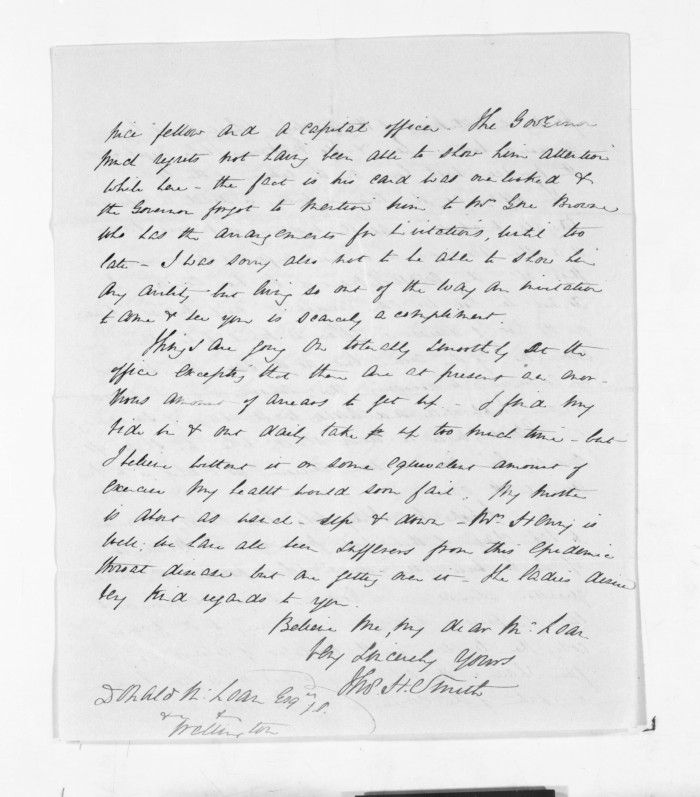 nice fellow and a capital officer. The Governor
much regrets not having been able to show him attention
while here - the fact is his card was overlooked &
the Governor forgot to mention him to Mrs Gore Browne
who has the arrangements for invitations, until too
late - I was sorry also not to be able to show him
any civility but living so out of the way an invitation
to come & see you is scarcely a compliment.
Things are going on tolerably smoothly at the
office excepting that there are at present an enor-
mous amount of arrears to get up - I find my
ride in & out daily take up too much time - but
I believe without it or some equivalent amount of
exercise my health would soon fail. My mother
is about as usual - up & down - Mrs Henry is
well: we have all been sufferers from this epidemic
throat disease but are getting over it - The ladies desire
very kind regards to you.
Believe me, my dear Mc Lean
Very Sincerely Yours
Thos H. Smith
Donald Mc Lean Esqre
Wellington